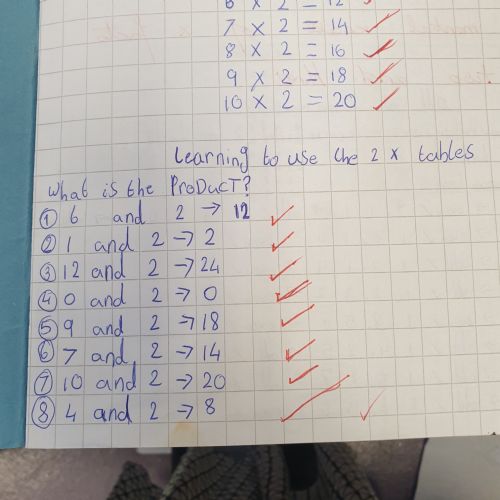 6 x 2 = 12
7 x 2 = 14
8 x 2 = 16
9 x 2 = 18
10 x 2 = 20
Learning to use the 2 x tables
What is the ProDucT?
① 6 and 2 → 12
② 1 and 2 → 2
③ 12 and 2 → 24
④ 0 and 2 → 0
⑤ 9 and 2 → 18
⑥ 7 and 2 → 14
⑦ 10 and 2 → 20
⑧ 4 and 2 → 8